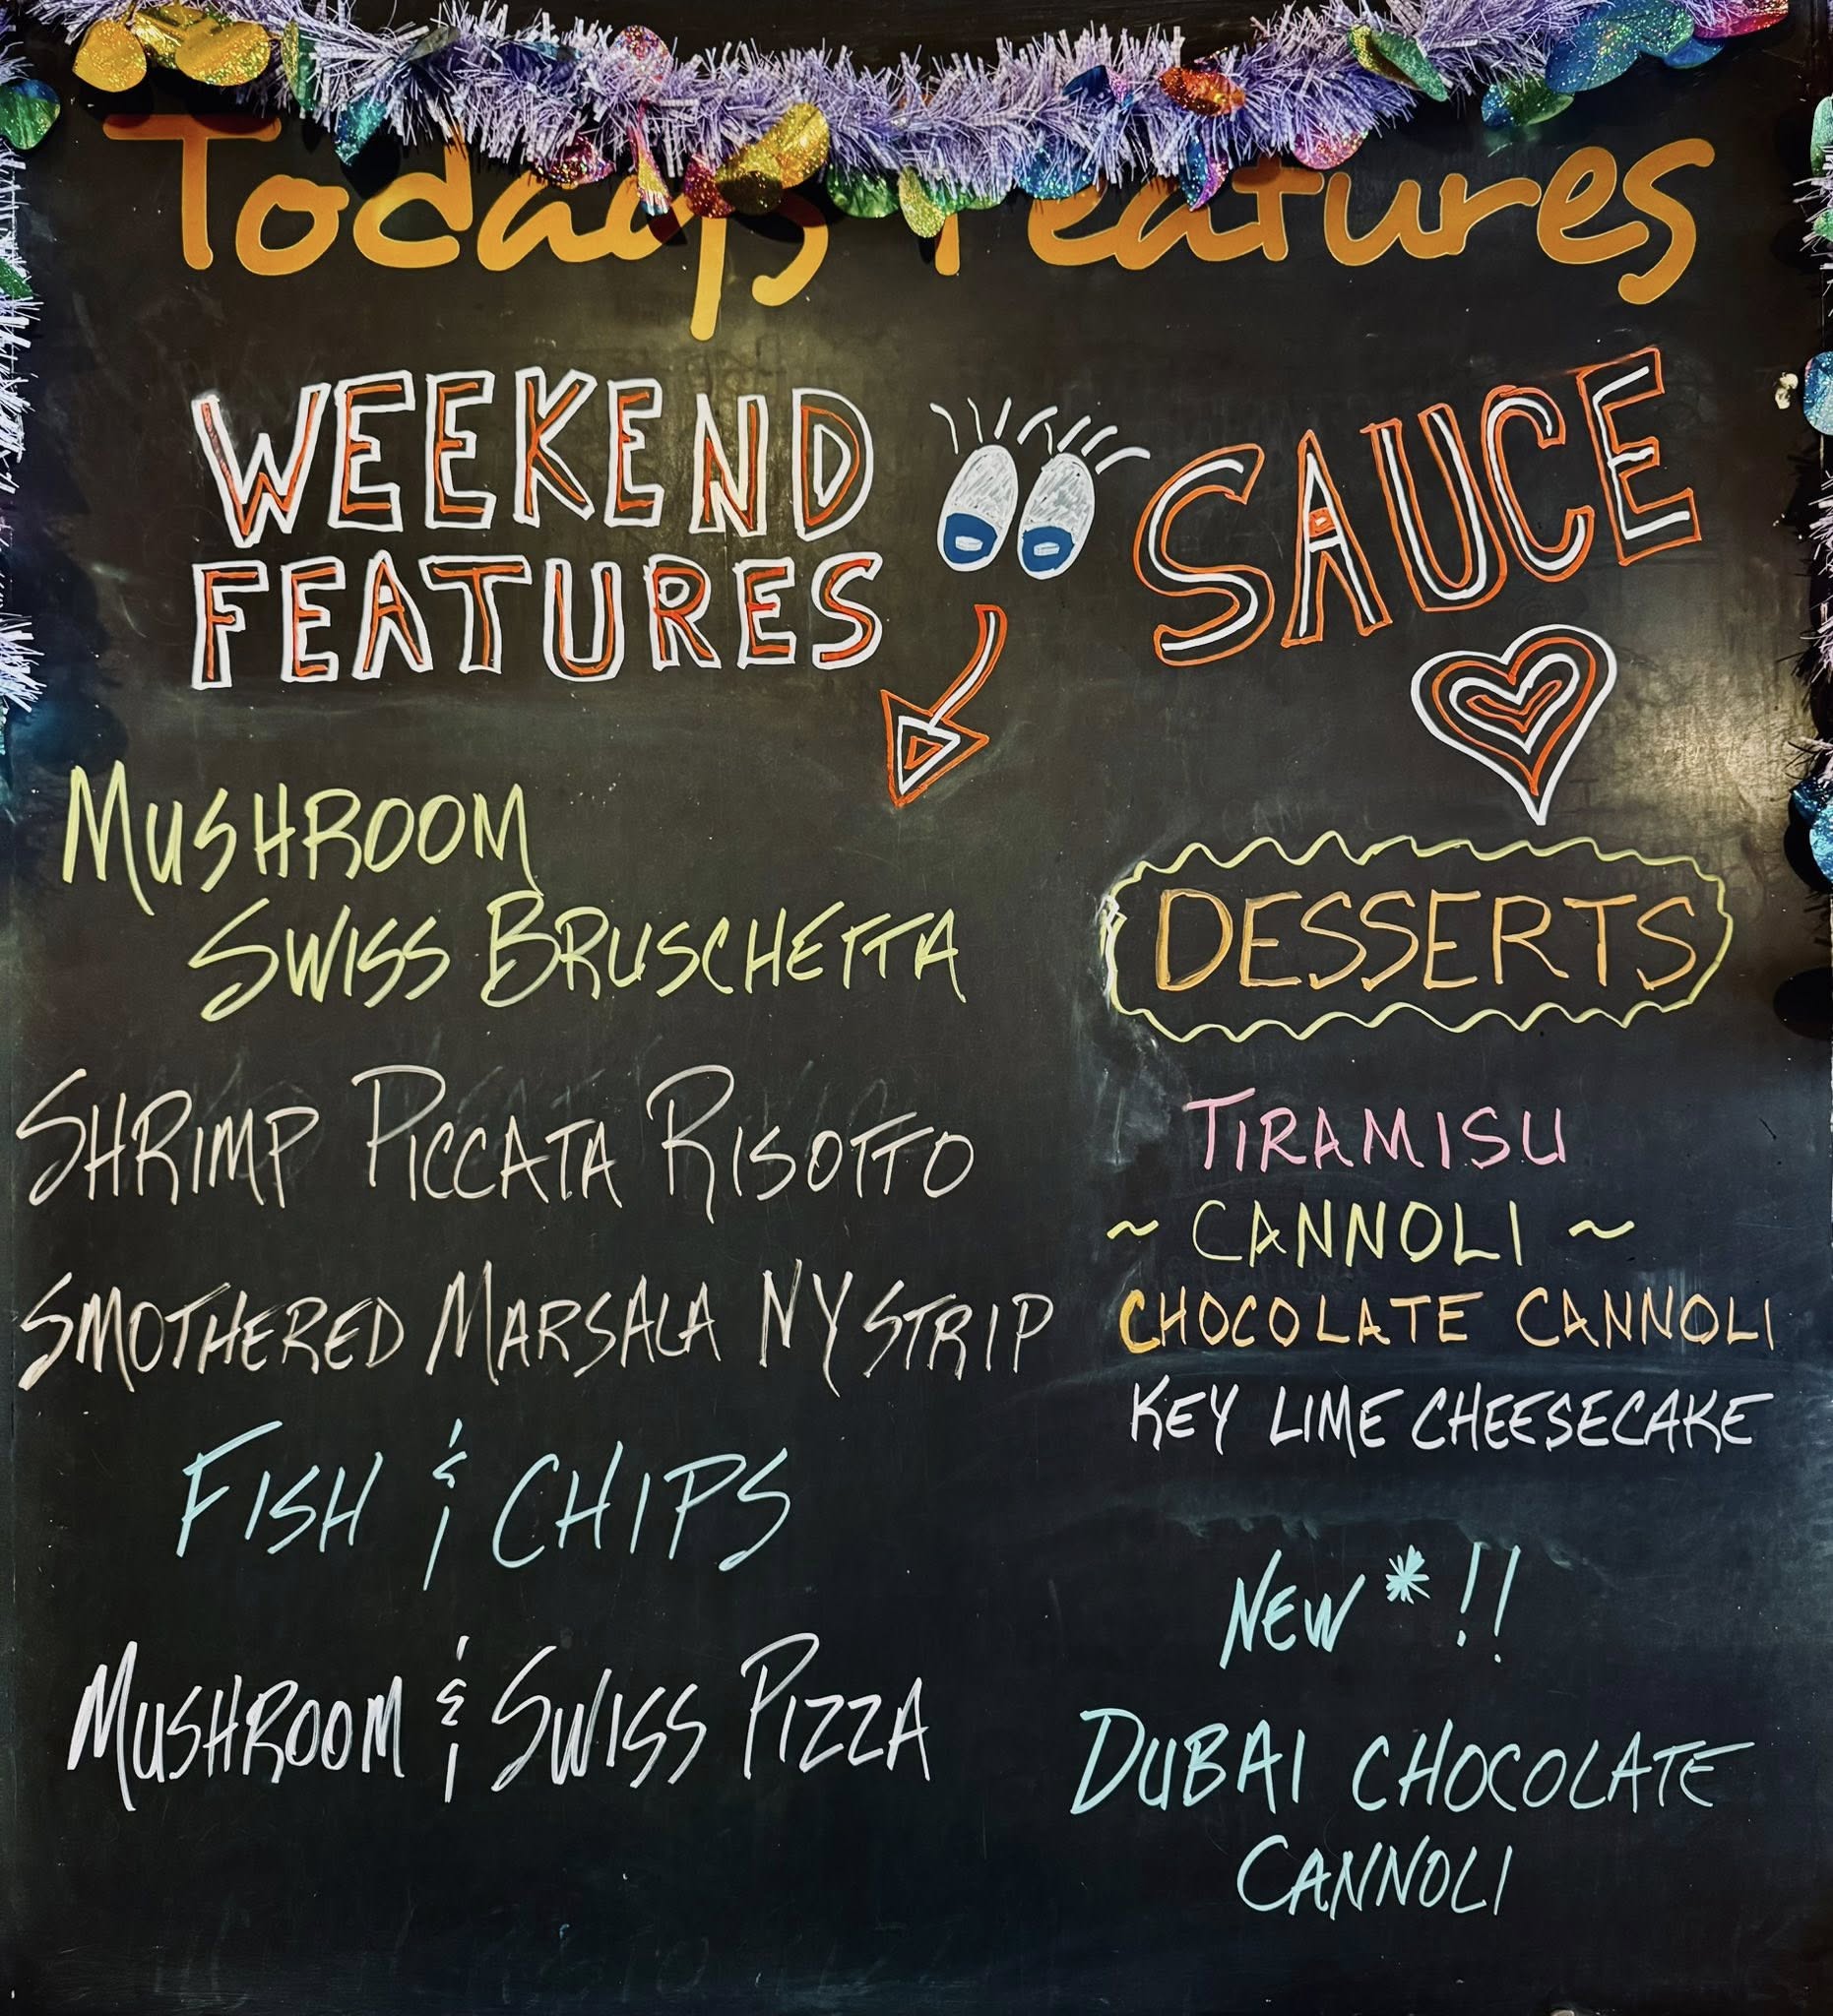 Todays Features
WEEKEND
FEATURES
SAUCE
MUSHROOM
SWISS BRUSCHETTA
SHRIMP PICCATA RISOTTO
SMOTHERED MARSALA NY STRIP
FISH & CHIPS
MUSHROOM & SWISS PIZZA
DESSERTS
TIRAMISU
~ CANNOLI ~
CHOCOLATE CANNOLI
KEY LIME CHEESECAKE
NEW*!!
DUBAI CHOCOLATE
CANNOLI